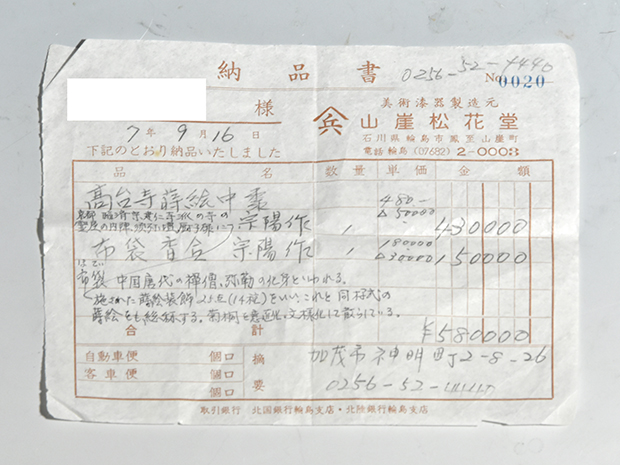 納品書
0256-52-4440
No 0020
様
7年9月16日
下記のとおり納品いたしました
美術漆器製造元
兵 山崖松花堂
石川県輪島市鳳至山崖町
電話輪島(07682)2-0003
品名 数量 単価 金額
高台寺蒔絵中棗 宗陽作 1 480- △50000 430000
布袋香合 宗陽作 1 180000 △30000 150000
ほてい
布袋 中国唐代の禅僧、弥勒の化身といわれる。
施された蒔絵装飾 をいい、これと同様式の
蒔絵をも総称する。菊桐を 文様化して散らしている。
合計 ¥580000
自動車便 個口
客車便 個口
個口
摘要
加茂市神明町2-8-26
0256-52-
取引銀行 北国銀行輪島支店・北陸銀行輪島支店